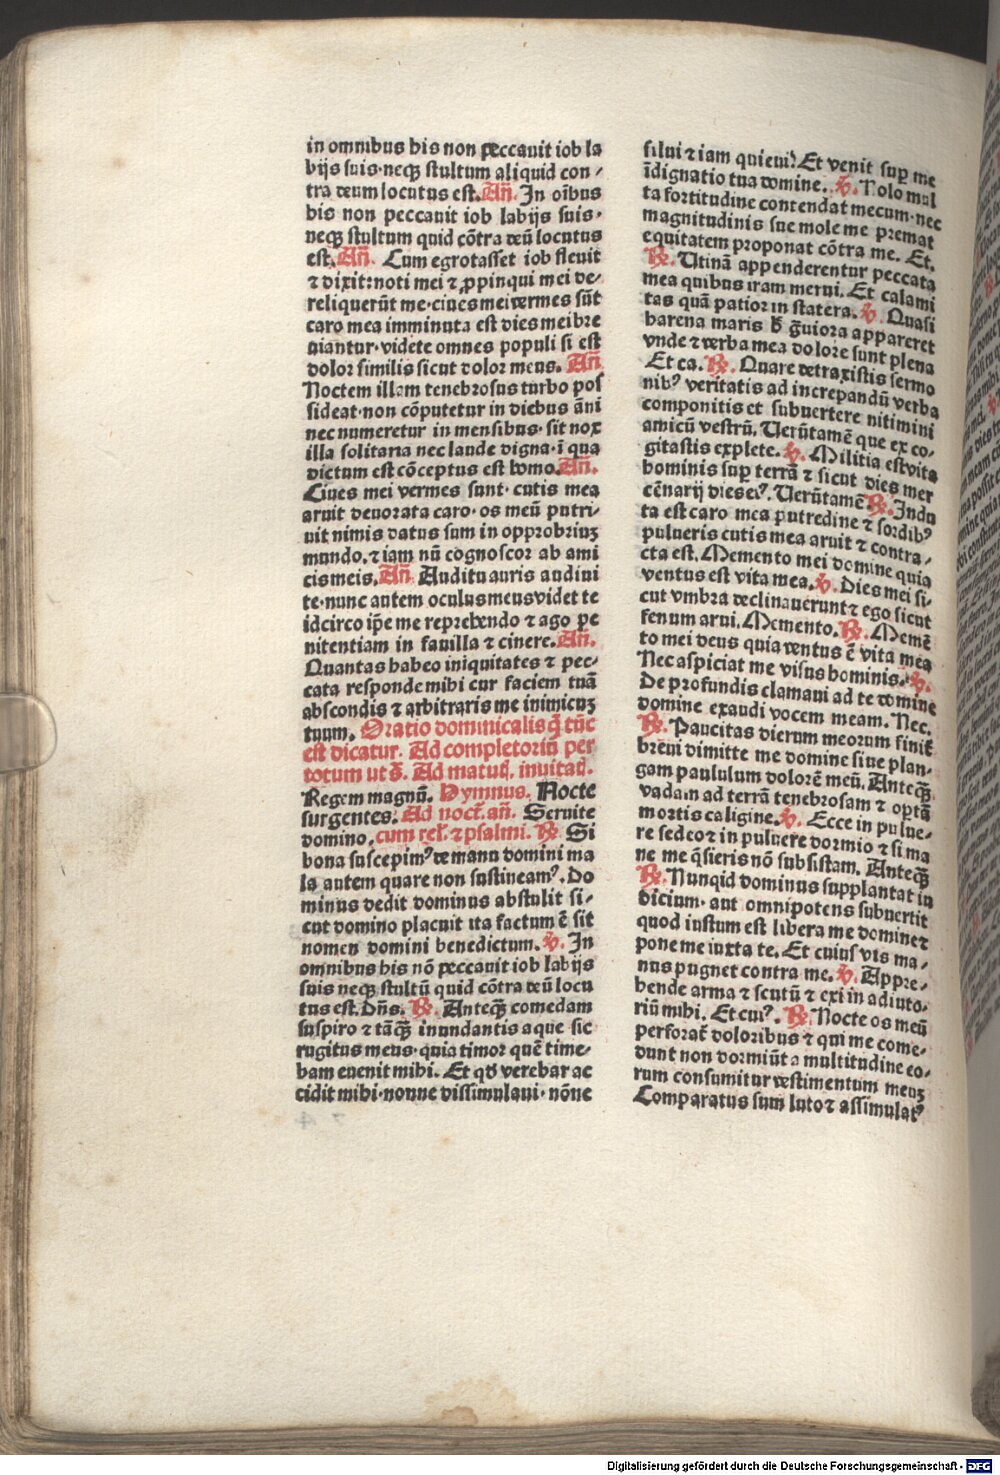 in omnibus his non peccauit iob la
bijs suis·neqꝫ stultum aliquid con⸗
tra deum locutus est. Añ. In oĩbus
his non peccauit iob labijs suis·
neqꝫ stultum quid cõtra deũ locutus
est. Añ. Cum egrotasset iob fleuit
⁊ dixit: noti mei ⁊ ꝓpinqui mei de⸗
reliquerũt me·ciues mei vermes sũt
caro mea imminuta est dies mei bre
uiantur·videte omnes populi si est
dolor similis sicut dolor meus. Añ.
Noctem illam tenebrosus turbo pos
sideat·non cõputetur in diebus ãni
nec numeretur in mensibus·sit nox
illa solitaria nec laude digna·ĩ qua
dictum est cõceptus est homo. Añ.
Ciues mei vermes sunt·cutis mea
aruit deuorata caro·os meũ putri⸗
uit nimis datus sum in opprobriuꝫ
mundo.⁊ iam nũ cognoscor ab ami
cis meis. Añ. Auditu auris audiui
te·nunc autem oculus meus videt te
idcirco ip̃e me reprehendo ⁊ ago pe
nitentiam in fauilla ⁊ cinere. Añ.
Quantas habeo iniquitates ⁊ pec⸗
cata responde mihi cur faciem tuã
abscondis ⁊ arbitraris me inimicuꝫ
tuum. Oratio dominicalis q̃ tũc
est dicatur. Ad completoriũ per
totum ut s̃. Ad matuđ. inuitađ.
Regem magnũ. Hymnus. Nocte
surgentes. Ad noct̃. añ. Seruite
domino. cum rel̃. ⁊ psalmi. ℟. Si
bona suscepimꝰ de manu domini ma
la autem quare non sustineamꝰ. Do
minus dedit dominus abstulit si⸗
cut domino placuit ita factum ẽ sit
nomen domini benedictum. ℣. In
omnibus his nõ peccauit iob labijs
suis neqꝫ stultũ quid cõtra deũ locu
tus est. Dñs. ℟. Anteqꝫ comedam
suspiro ⁊ tãqꝫ inundantis aque sic
rugitus meus·quia timor quẽ time⸗
bam euenit mihi. Et qđ verebar ac
cidit mihi·nonne dissimulaui·nõne
silui ⁊ iam quieui? Et venit suꝑ me
ĩdignatio tua domine. ℣. Nolo mul
ta fortitudine contendat mecum·nec
magnitudinis sue mole me premat
equitatem proponat cõtra me. Et.
℟. Utinã appenderentur peccata
mea quibus iram merui. Et calami
tas quã patior in statera. ℣. Quasi
harena maris h̃ g̃uiora appareret
vnde ⁊ verba mea dolore sunt plena
Et ca. ℟. Quare detraxistis sermo
nibꝰ veritatis ad increpandũ verba
componitis et subuertere nitimini
amicũ vestrũ. Verũtamẽ que ex co⸗
gitastis explete. ℣. Militia est vita
hominis suꝑ terrã ⁊ sicut dies mer
cẽnarij dies eiꝰ. Verũtamẽ ℟. Indu
ta est caro mea putredine ⁊ sordibꝰ
pulueris cutis mea aruit ⁊ contra⸗
cta est. Memento mei domine quia
ventus est vita mea. ℣. Dies mei si⸗
cut vmbra declinauerunt ⁊ ego sicut
fenum arui. Memento. ℟. Memẽ
to mei deus quia ventus ẽ vita mea
Nec aspiciat me visus hominis. ℣.
De profundis clamaui ad te domine
domine exaudi vocem meam. Nec.
℟. Paucitas dierum meorum finit̃
breui dimitte me domine sine plan⸗
gam paululum dolorẽ meũ. Anteqꝫ
vadam ad terrã tenebrosam ⁊ optã
mortis caligine. ℣. Ecce in pulue⸗
re sedeo ⁊ in puluere dormio ⁊ si ma
ne me q̃sieris nõ subsistam. Anteqꝫ
℟. Nunqid dominus supplantat iu
dicium·aut omnipotens subuertit
quod iustum est libera me domine ⁊
pone me iuxta te. Et cuius vis ma⸗
nus pugnet contra me. ℣. Appre⸗
hende arma ⁊ scutũ ⁊ exi in adiuto⸗
riũ mihi. Et cuiꝰ. ℟. Nocte os meũ
perforat̃ doloribus ⁊ qui me come⸗
dunt non dormiũt a multitudine eo⸗
rum consumitur vestimentum meuꝫ
Comparatus sum luto ⁊ assimulatꝰ
Digitalisierung gefördert durch die Deutsche Forschungsgemeinschaft - DFG